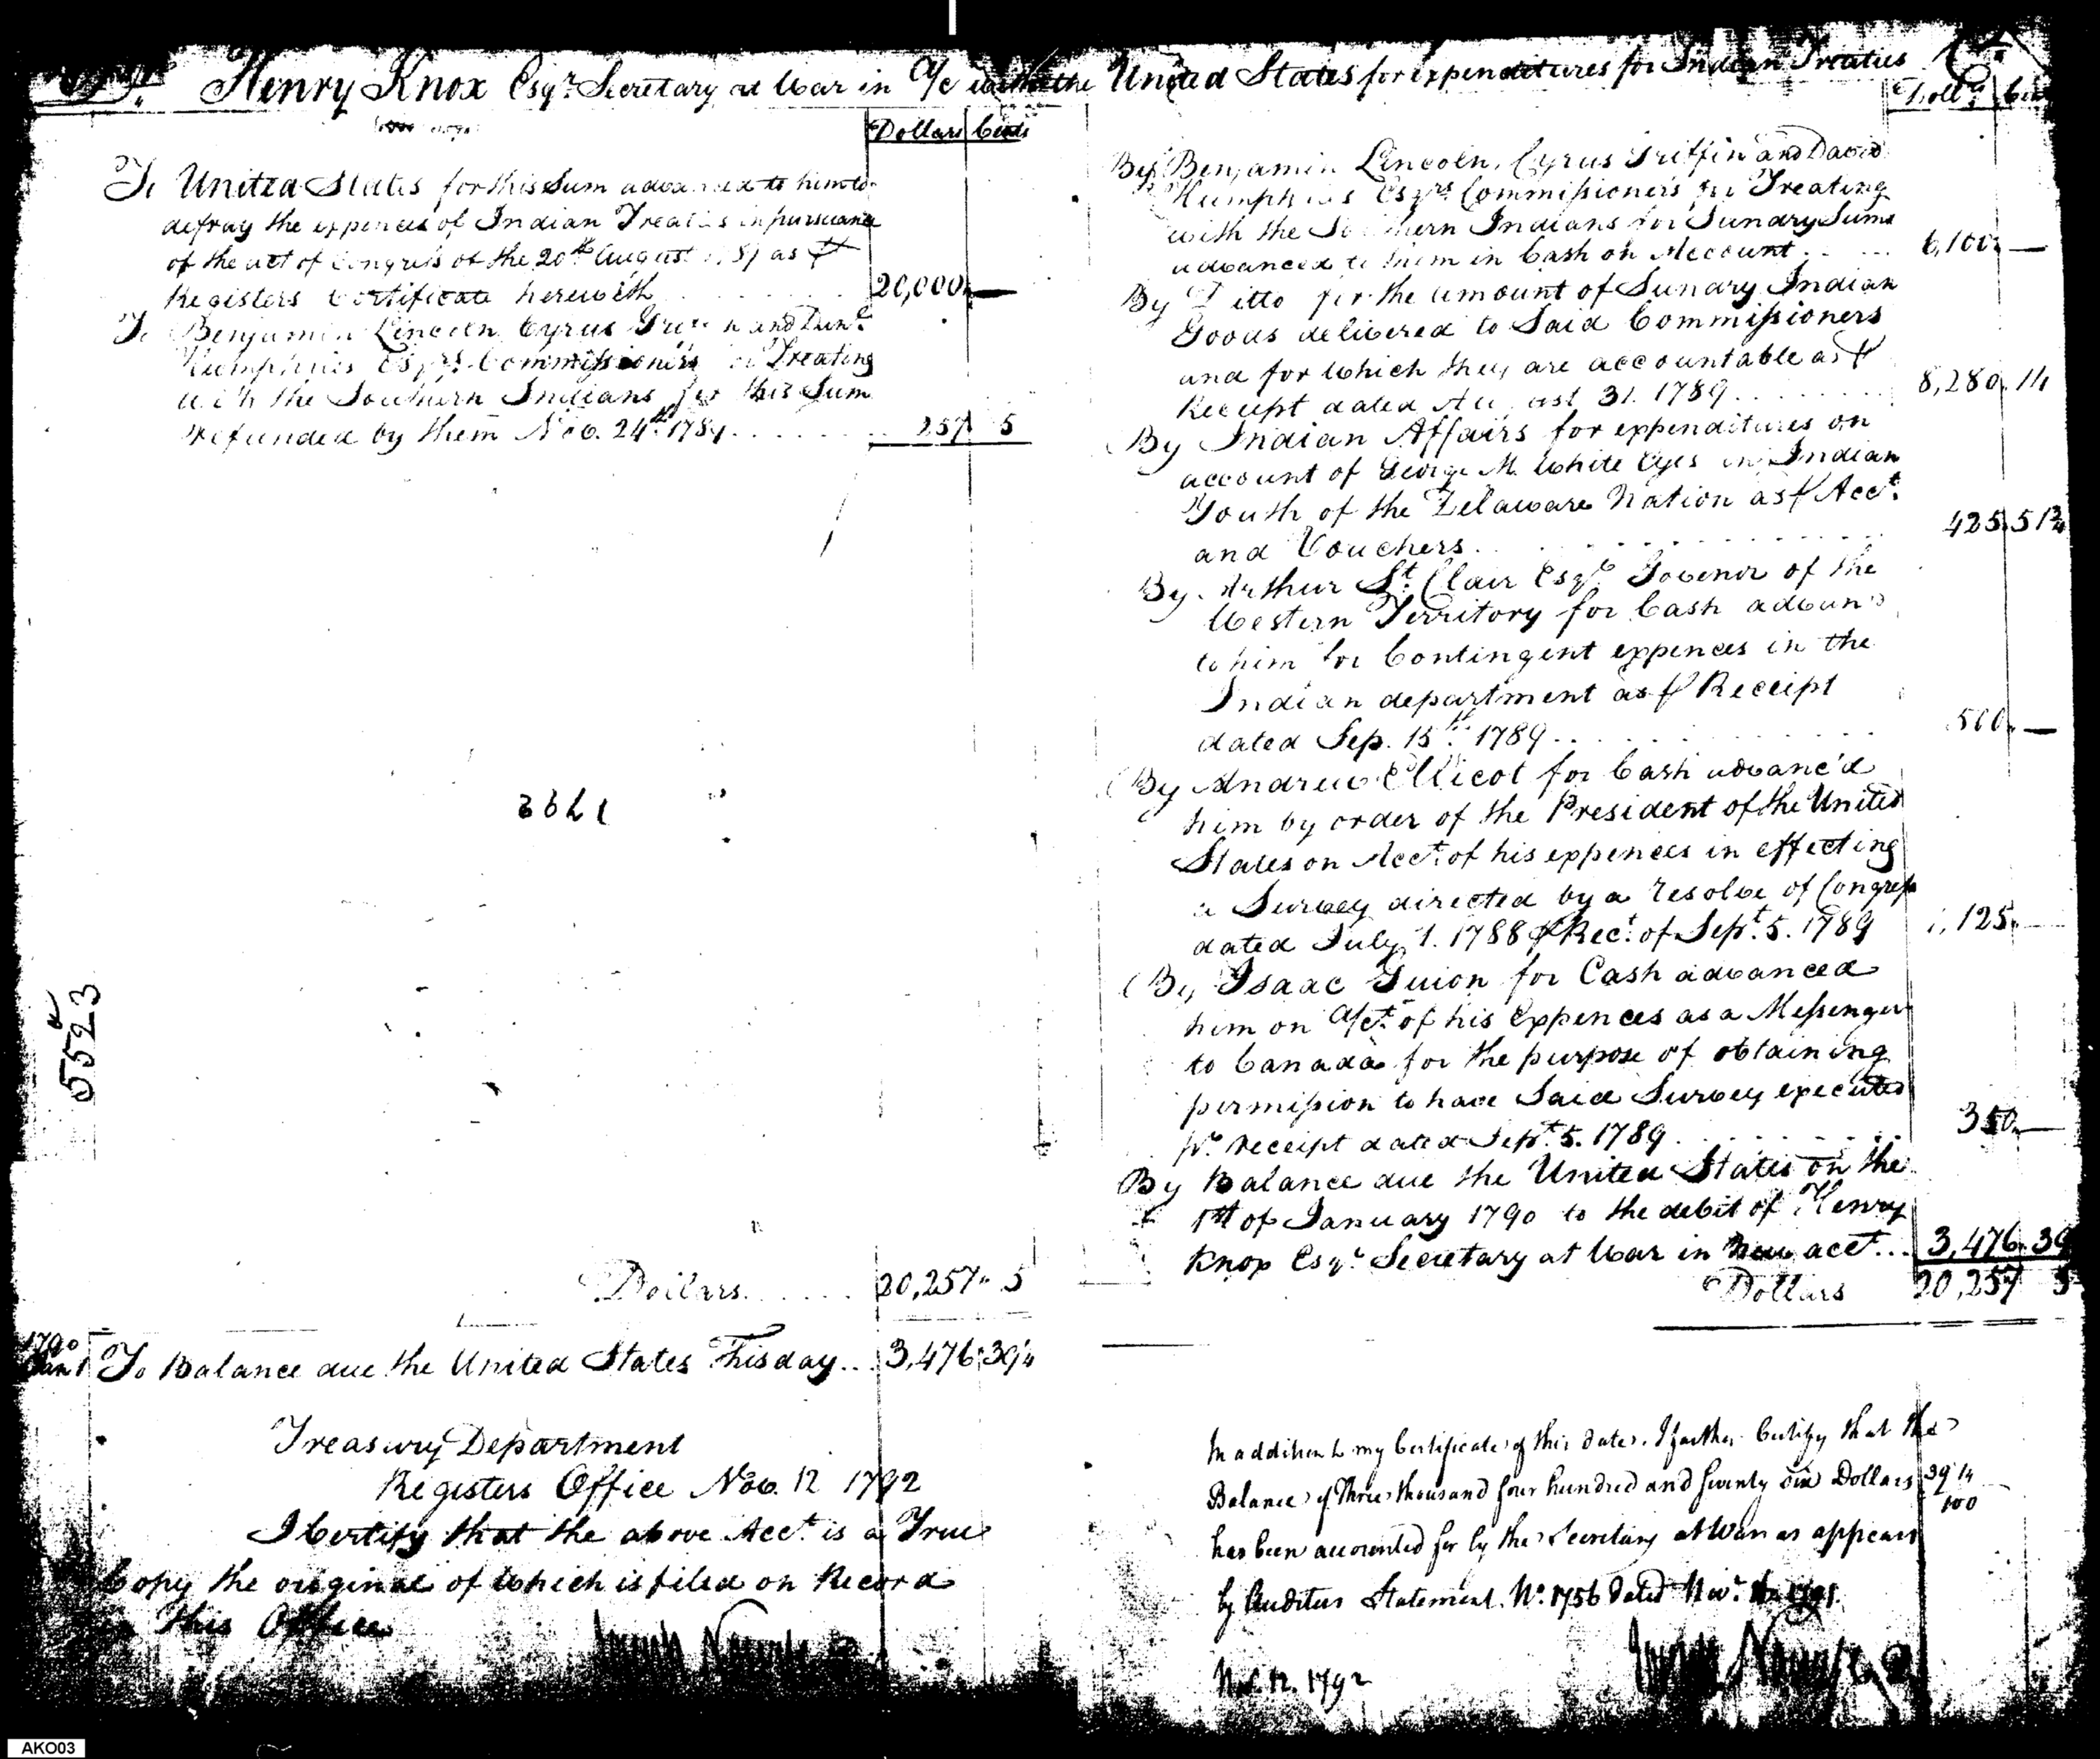 Henry Knox Esqr. Secretary at War in A/c with the United States for expenditures for Indian Treaties
Dollars Cents
To United States for this Sum advanced to him to
defray the expences of Indian Treaties in pursuance
of the act of Congress of the 20th August as ⅌
Registers Certificate herewith 20,000 —
To Benjamin Lincoln Cyrus Griffin and
Humphries Esqrs. Commissioners for Treating
with the Southern Indians for this Sum
refunded by them Nov. 24th 1789 257 5
1792
5523
Dollars 20,257 " 5
1790
Jan 1 To Balance due the United States This day 3,476 39¼
Treasury Department
Registers Office Nov. 12 1792
I Certify that the above Acct. is a True
Copy the original of which is filed on Record
in this Office
Joseph Nourse
Dolls. Cents
By Benjamin Lincoln, Cyrus Griffin and David
Humphries Esqrs. Commissioners for Treating
with the Southern Indians for Sundry Sums
advanced to them in Cash on Account 6,100 —
By Ditto for the amount of Sundry Indian
Goods delivered to Said Commissioners
and for which they are accountable as ⅌
Receipt dated August 31. 1789 8,280. 14
By Indian Affairs for expenditures on
account of George M. White Eyes an Indian
Youth of the Delaware Nation as ⅌ Acct.
and Vouchers 425. 51¾
By Arthur St. Clair Esqr. Govenor of the
Western Territory for Cash advan'd
to him for Contingent expences in the
Indian department as ⅌ Receipt
dated Sep. 15th 1789 500 —
By Andrew Ellicot for Cash advanc'd
him by order of the President of the United
States on Acct. of his expences in effecting
a Survey directed by a resolve of Congress
dated July 1. 1788 ⅌ Rect. of Sept. 5. 1789 1,125.
By Isaac Guion for Cash advanced
him on A/ct. of his Expences as a Messenger
to Canada for the purpose of obtaining
permission to have Said Survey executed
pr. receipt dated Sept. 5. 1789 350 —
By Balance due the United States on the
1st of January 1790 to the debit of Henry
Knox Esqr. Secretary at War in New acct. 3,476. 39
Dollars 20,257 5
In addition to my Certificate of this date, I further Certify that the
Balance of Three thousand four hundred and seventy six Dollars 39¼/100
has been accounted for by the Secretary at War as appears
by Auditors Statement. No. 1756 Dated Novr.
Nov. 12. 1792
Joseph Nourse
AKO03